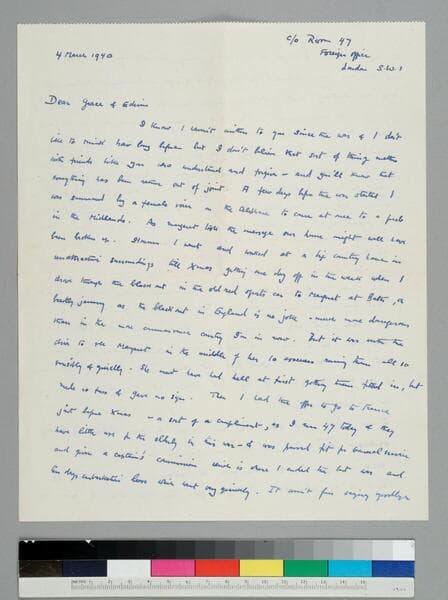 c/o Room 47
Foreign Office
London S.W.1
4 March 1940
Dear Grace & Edwin
I know I haven't written to you since the war & I don't
like to think how long before but I don't believe that sort of thing matters
with friends like you who understand and forgive – and you'll know that
everything has been rather out of joint. A few days before the war started I
was summoned by a female voice on the telephone to come at once to a job
in the Midlands. As Margaret took the message our home might well have
been broken up. I went and worked at a big country house in
unattractive surroundings till Xmas getting one day off in the week when I
drove through the blackout in the old red sports car to Margaret at Bath, a
beastly journey as the blackout in England is no joke – much more dangerous
than in the more country I'm in now. But it was worth the
drive to see Margaret in the middle of her 10 evacuees running them all so
sensibly & quietly. She must have had hell at first getting them fitted in, but
made no fuss & gave no sign. Then I had the offer to go to France
just before Xmas – a sort of a compliment, as I am 47 today & they
have little use for the elderly in this war – & was passed fit for general service
and given a captain's commission which is where I ended the last war and
ten days embarkation leave which went very quickly. It wasn't fun saying goodbye